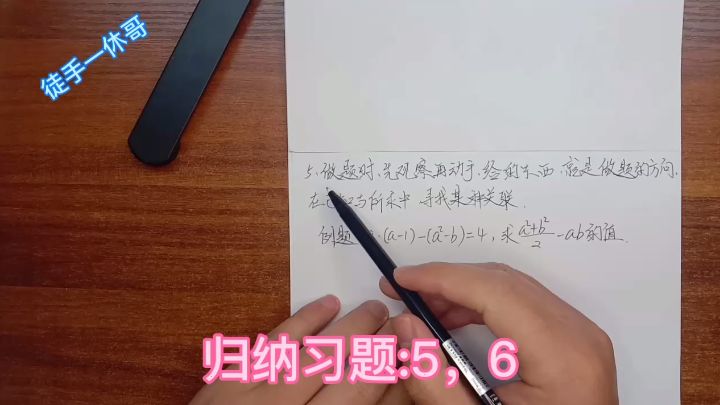 徒手一休哥
5、做题时,先观察再动手,给的东西,就是做题的方向,
在已知与所求中 寻找某种关联.
例题 ·(a-1)-(a²-b)=4,求(a²+b²)/2-ab的值.
归纳习题:5，6